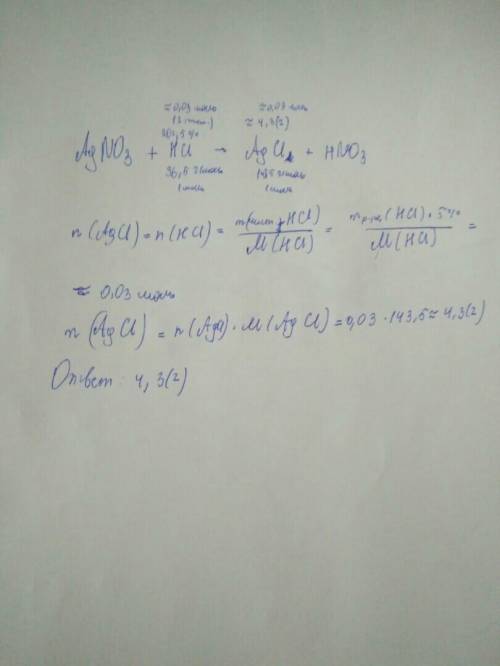 ≈0,03 моль ≈0,03 моль
≈ 4,3(г)
AgNO3 + HCl → AgCl↓ + HNO3
36,5 г/моль 143,5 г/моль
1 моль 1 моль
n(AgCl) = n(HCl) = m(HCl) / M(HCl) = m р-ра (HCl) · 5% / M(HCl) =
≈ 0,03 моль
m(AgCl) = n(AgCl) · M(AgCl) = 0,03 · 143,5 ≈ 4,3(г)
Ответ: 4,3(г)